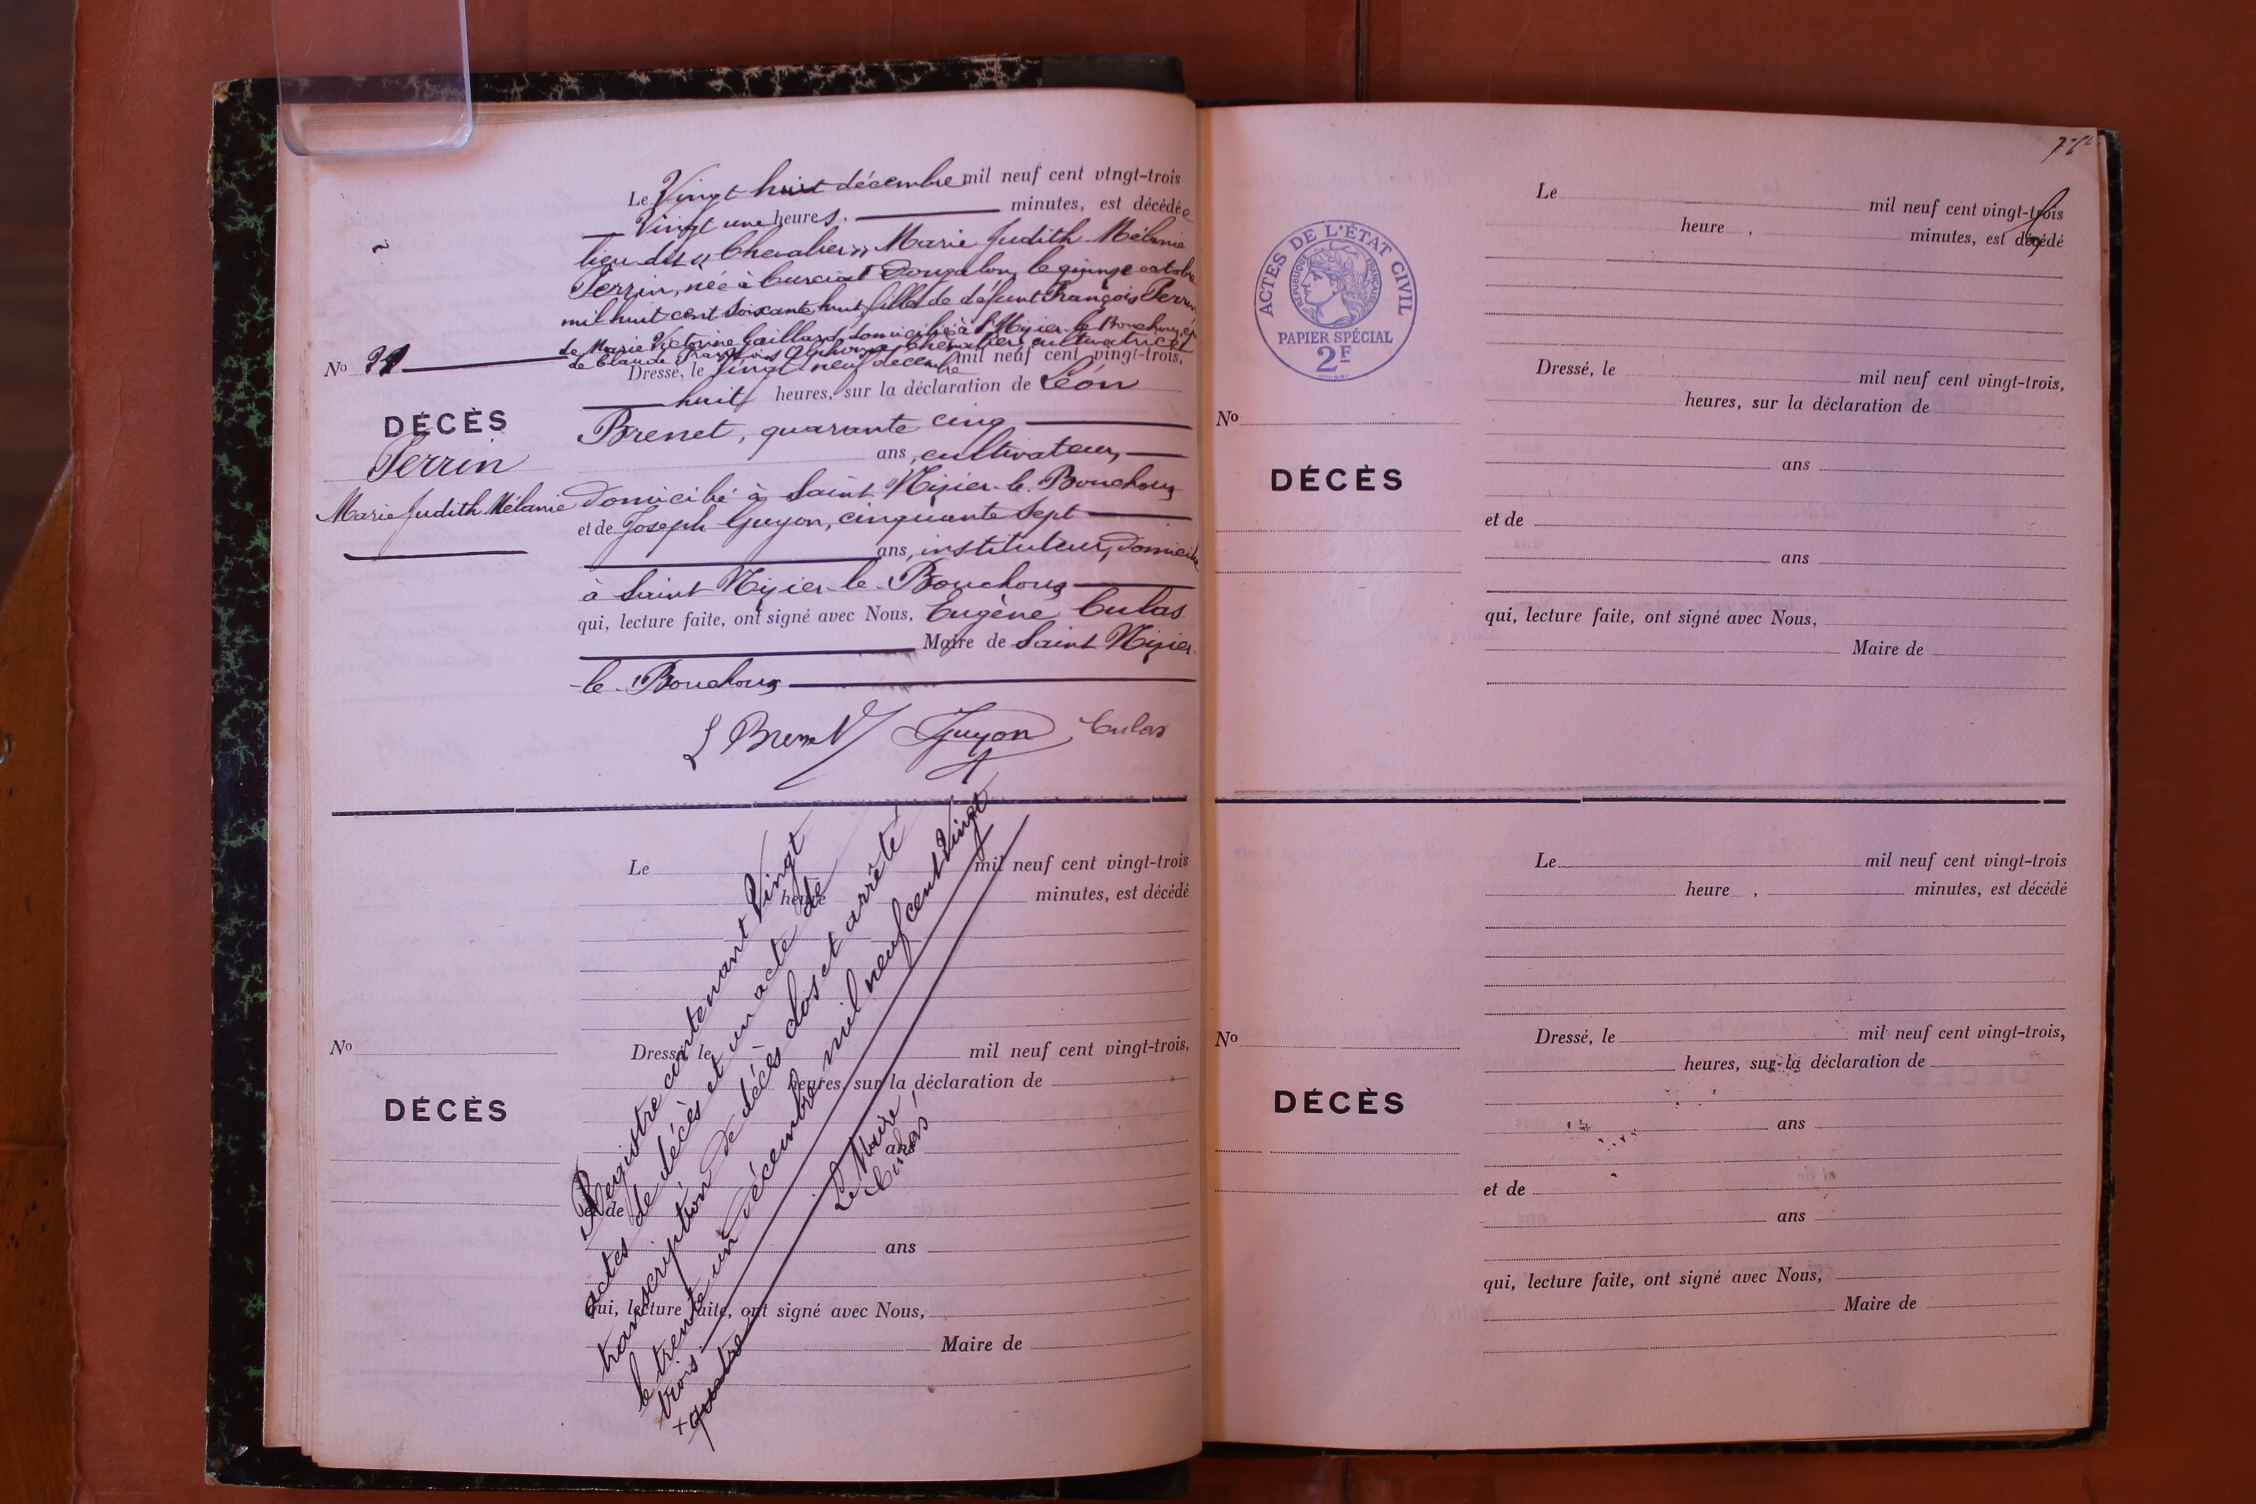 Le Vingt huit décembre mil neuf cent vingt-trois
Vingt une heures, minutes, est décédée
lieu dit « Chevalier » Marie Judith Mélanie
Perrin, née à Curciat Dongalon, le quinze octobre
mil huit cent soixante huit, fille de défunt François Perrin
de Marie Victorine Gaillard, domiciliée à St Nizier-le-Bouchoux, ép
de Claude François Alphonse Chevalier, cultivatrice
No 21
Dressé, le Vingt neuf décembre mil neuf cent vingt-trois,
huit heures, sur la déclaration de Léon
DÉCÈS
Perrin
Marie Judith Mélanie
Brenet, quarante cinq
ans, cultivateur,
domicilié à Saint Nizier-le-Bouchoux
et de Joseph Guyon, cinquante sept
ans, instituteur, domicilié
à Saint Nizier-le-Bouchoux
qui, lecture faite, ont signé avec Nous, Eugène Culas
Maire de Saint Nizier-
le-Bouchoux
L Brenet Guyon Culas
Le mil neuf cent vingt-trois
heure minutes, est décédé
No
Dressé, le mil neuf cent vingt-trois,
heures, sur la déclaration de
DÉCÈS
ans
et de
ans
qui, lecture faite, ont signé avec Nous,
Maire de
Registre contenant Vingt
actes de décès et un acte de
transcription de décès clos et arrêté
le trente un décembre mil neuf cent Vingt
trois
+ quatre
Le Maire,
Culas
Le mil neuf cent vingt-trois
heure , minutes, est décédé
ACTES DE L'ÉTAT CIVIL
RÉPUBLIQUE FRANÇAISE
PAPIER SPÉCIAL
2F
Dressé, le mil neuf cent vingt-trois,
heures, sur la déclaration de
No
DÉCÈS
ans
et de
ans
qui, lecture faite, ont signé avec Nous,
Maire de
Le mil neuf cent vingt-trois
heure , minutes, est décédé
No
Dressé, le mil neuf cent vingt-trois,
heures, sur la déclaration de
DÉCÈS
ans
et de
ans
qui, lecture faite, ont signé avec Nous,
Maire de